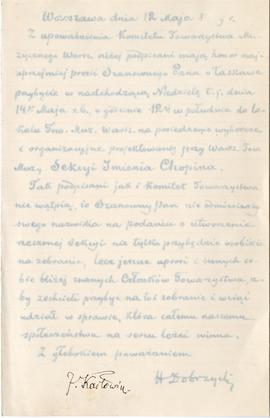 Warszawa dnia 12 Maja
Z upoważnienia Komitetu Towarzystwa Mu-
zycznego Warsz. niżej podpisani mają honor naj-
uprzejmiej prosić Szanownego Pana o łaskawe
przybycie w nadchodzącą Niedzielę t. j. dnia
14go Maja r. b. o godzinie 12½ w południe do lo-
kalu Tow. Muz. Warsz. na posiedzenie wyborcze
i organizacyjne projektowanej przy Warsz. Tow.
Muz. Sekcyi Imienia Chopina.
Tak podpisani jak i Komitet Towarzystwa
nie wątpią, że Szanowny Pan nie odmówiwszy
swego nazwiska na podaniu o utworzenie
rzeczonej Sekcyi nie tylko przybędzie osobiście
na zebranie, lecz jeszcze uprosi i innych so-
bie bliżej znanych Członków Towarzystwa, a-
by zechcieli przybyć na toż zebranie i wziąć
udział w sprawie, która całemu naszemu
społeczeństwu na sercu leżeć winna.
Z głębokiem poważaniem
J. Karłowicz H Dobrzycki